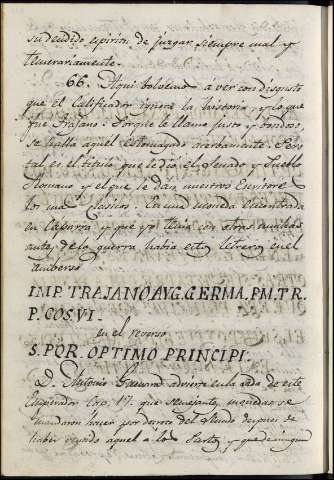 su denodo espiritu de juzgar siempre mal y
temerariamente.
66. Aqui bolvemos a ver con disgusto
que el Calificador ignora la historia, y lo que
fue Trajano. Porque le llamo justo y bondoso,
se halla aquel estomagado acerbamente. Pero
tal es el titulo que le dio el Senado y Pueblo
Romano y el que le dan nuestros Escritores
los mas clasicos. En una Moneda encontrada
en Caparra, y que yo tenia con otras muchas
antes de la guerra habia este letrero en el
anberso
IMP. TRAJANO AVG. GERMA. P.M. TR.
P. COS. VI.
en el reverso
S. P. Q. R. OPTIMO PRINCIPI.
D. Antonio Guevara advierte en la vida de este
Emperador Cap. 17. que semejantes monedas se
mandaron hacer por decreto del Senado despues de
haber vencido aquel a los Partos, y que de ninguno